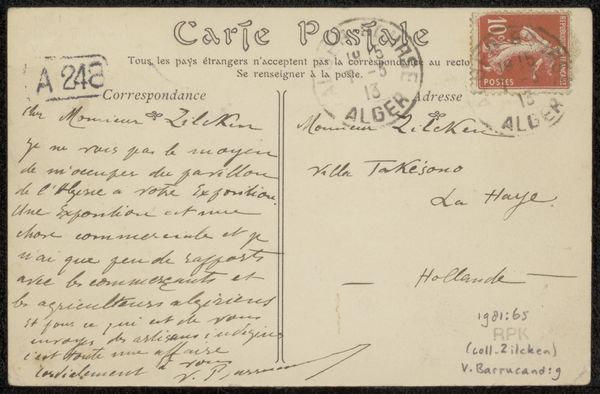 Carte Postale
Tous les pays étrangers n'acceptent pas la correspondance au recto
Se renseigner à la poste.
Correspondance
Adresse
A 248
10c
REPUBLIQUE FRANCAISE
POSTES
13
ALGER
13
ALGER
Cher Monsieur Zilcken
Je ne vois pas le moyen
de m'occuper du pavillon
de l'Algérie à votre Exposition.
Une Exposition est une
chose commerciale et je
n'ai que peu de rapports
avec les commerçants et
les agriculteurs algériens
Et pour ce qui est de vous
envoyer des artisans indigènes
c'est toute une affaire
Cordialement à vous
Monsieur Zilcken
Villa Takésono
La Haye.
— Hollande —
1981:65
RPK
(coll. Zilcken)
V. Barrucand: 9